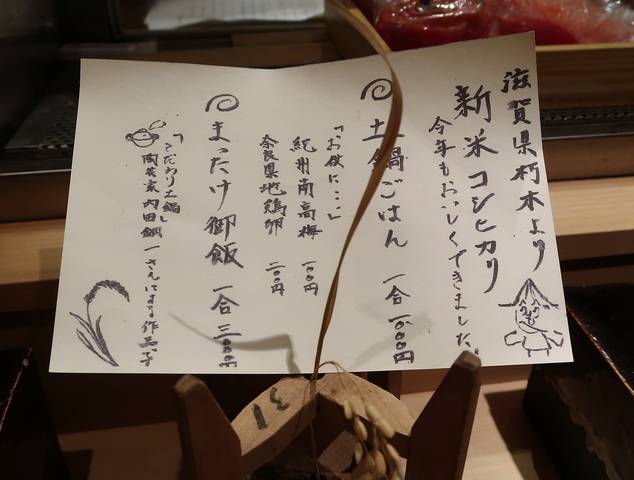 滋賀県朽木より
新米コシヒカリ
今年もおいしくできました。
土鍋ごはん 一合 一、〇〇〇円
「お供に・・・」
紀州南高梅 一〇〇円
奈良県地鶏卵 二〇〇円
まったけ御飯 一合 三、〇〇〇円
「こだわり土鍋」
陶芸家内田鋼一さんによる作品です
31